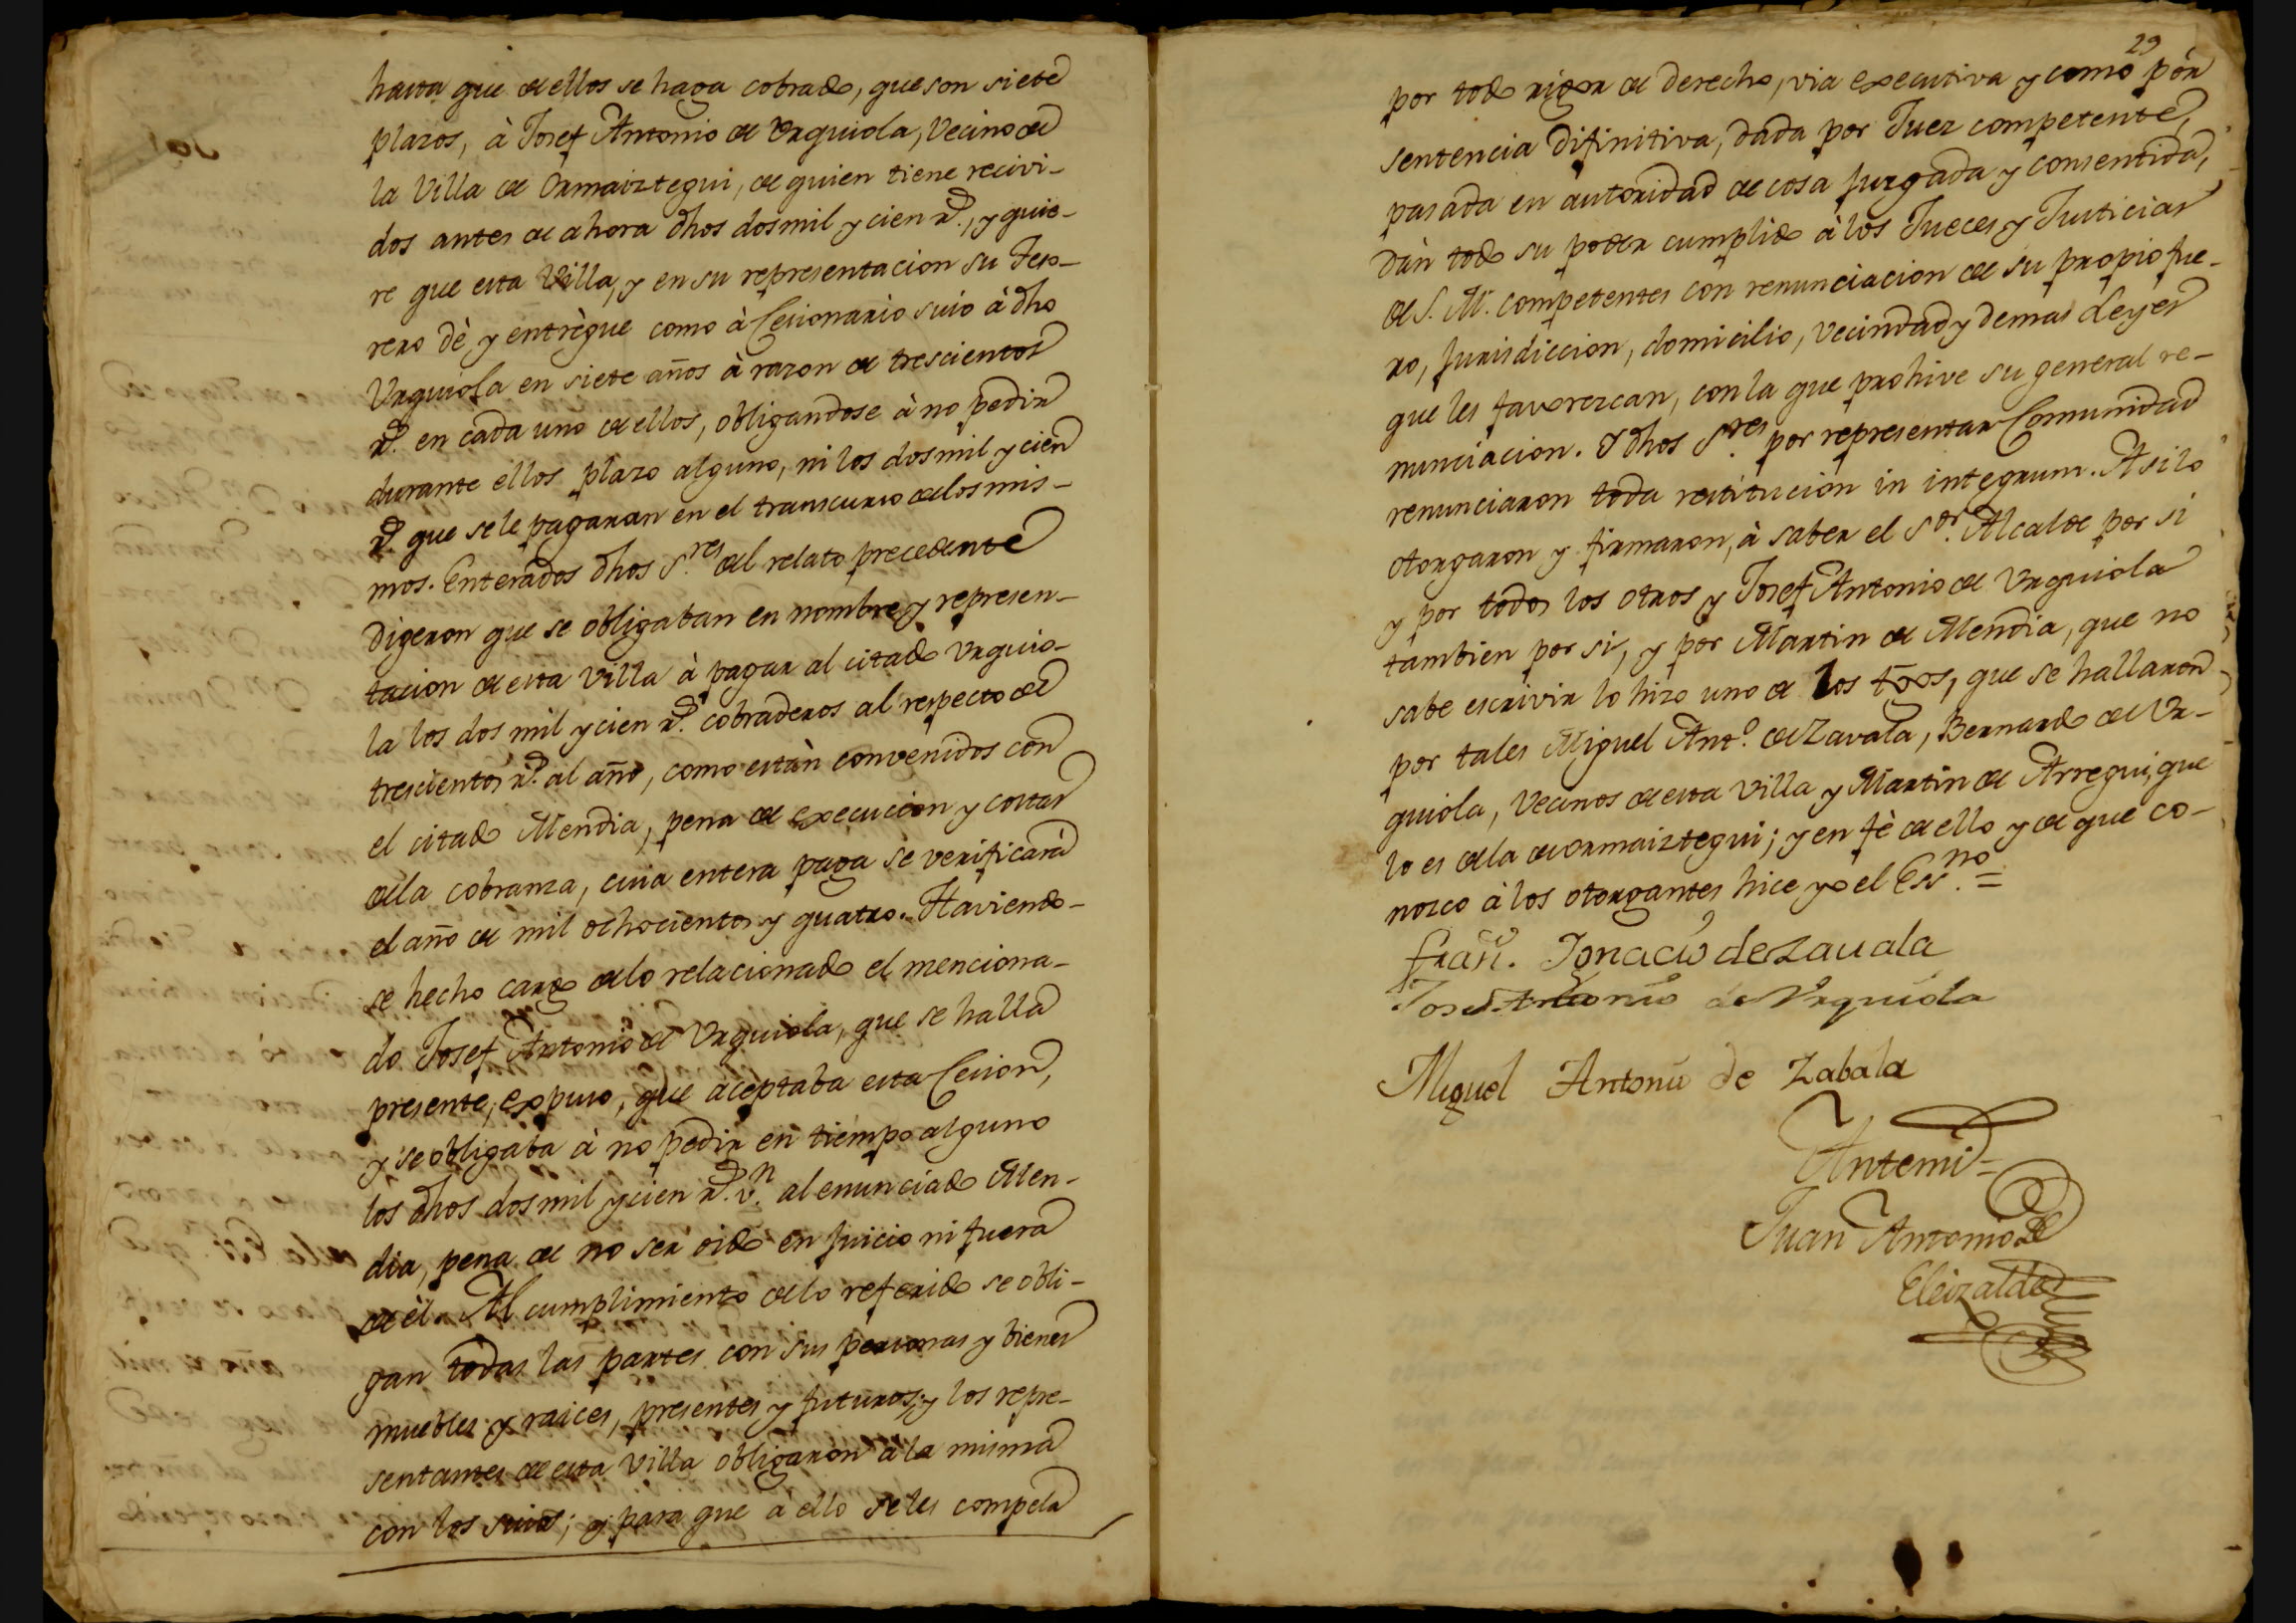 hasta que de ellos se haga cobrado, que son siete
plazos, à Josef Antonio de Urquiola, Vecino de
la Villa de Ormaiztegui, de quien tiene recivi-
dos antes de ahora dhos dos mil y cien r.s, y quie-
re que esta Villa, y en su representacion su Teso-
rero dè y entrègue como à Cesionario suio à dho
Urquiola en siete años à razon de trescientos
r.s en cada uno de ellos, obligandose à no pedir
durante ellos plazo alguno, ni los dos mil y cien
r.s que se le pagaran en el transcurso de los mis-
mos. Enterados dhos S.res del relato precedente
digeron que se obligaban en nombre y represen-
tacion de esta Villa à pagar al citado Urquio-
la los dos mil y cien r.s cobraderos al respecto de
trescientos r.s al año, como estàn convenidos con
el citado Mendia, pena de execucion y costas
de la cobranza, cuia entera paga se verificarà
el año de mil ochocientos y quatro. Haviendo-
se hecho cargo de lo relacionado el menciona-
do Josef Antonio de Urquiola, que se halla
presente, expuso, que aceptaba esta Cesion,
y se obligaba à no pedir en tiempo alguno
los dhos dos mil y cien r.s v.n al enunciado Men-
dia, pena de no ser oido en juicio ni fuera
de èl. Al cumplimiento de lo referido se obli-
gan todas las partes con sus personas y bienes
muebles y raices, presentes y futuros; y los repre-
sentantes de esta Villa obligaron à la misma
con los suios; y para que à ello se les compela
29
por todo rigor de derecho, via executiva y como por
sentencia difinitiva, dada por Juez competente,
pasada en autoridad de cosa juzgada y consentida,
dàn todo su poder cumplido à los Jueces y Justicias
de S. M. competentes con renunciacion de su propio fue-
ro, jurisdiccion, domicilio, vecindad y demas Leyes
que les favorezcan, con la que prohive su general re-
nunciacion. Y dhos S.res por representar Comunidad
renunciaron toda restitucion in integrum. Asi lo
otorgaron y firmaron, à saber el S.or Alcalde por si
y por todos los otros y Josef Antonio de Urquiola
tambien por si, y por Martin de Mendia, que no
sabe escrivir lo hizo uno de los tgos, que se hallaron
por tales Miguel Ant.o de Zavala, Bernardo de Ur-
quiola, Vecinos de esta Villa y Martin de Arregui, que
lo es de la de Ormaiztegui; y en fè de ello y de que co-
nozco à los otorgantes hice yo el Ess.no =
Fran.co Ignacio de Zauala
Josef Antonio de Urquiola
Miguel Antonio de Zabala
Antemi =
Juan Antonio de
Eleizalde